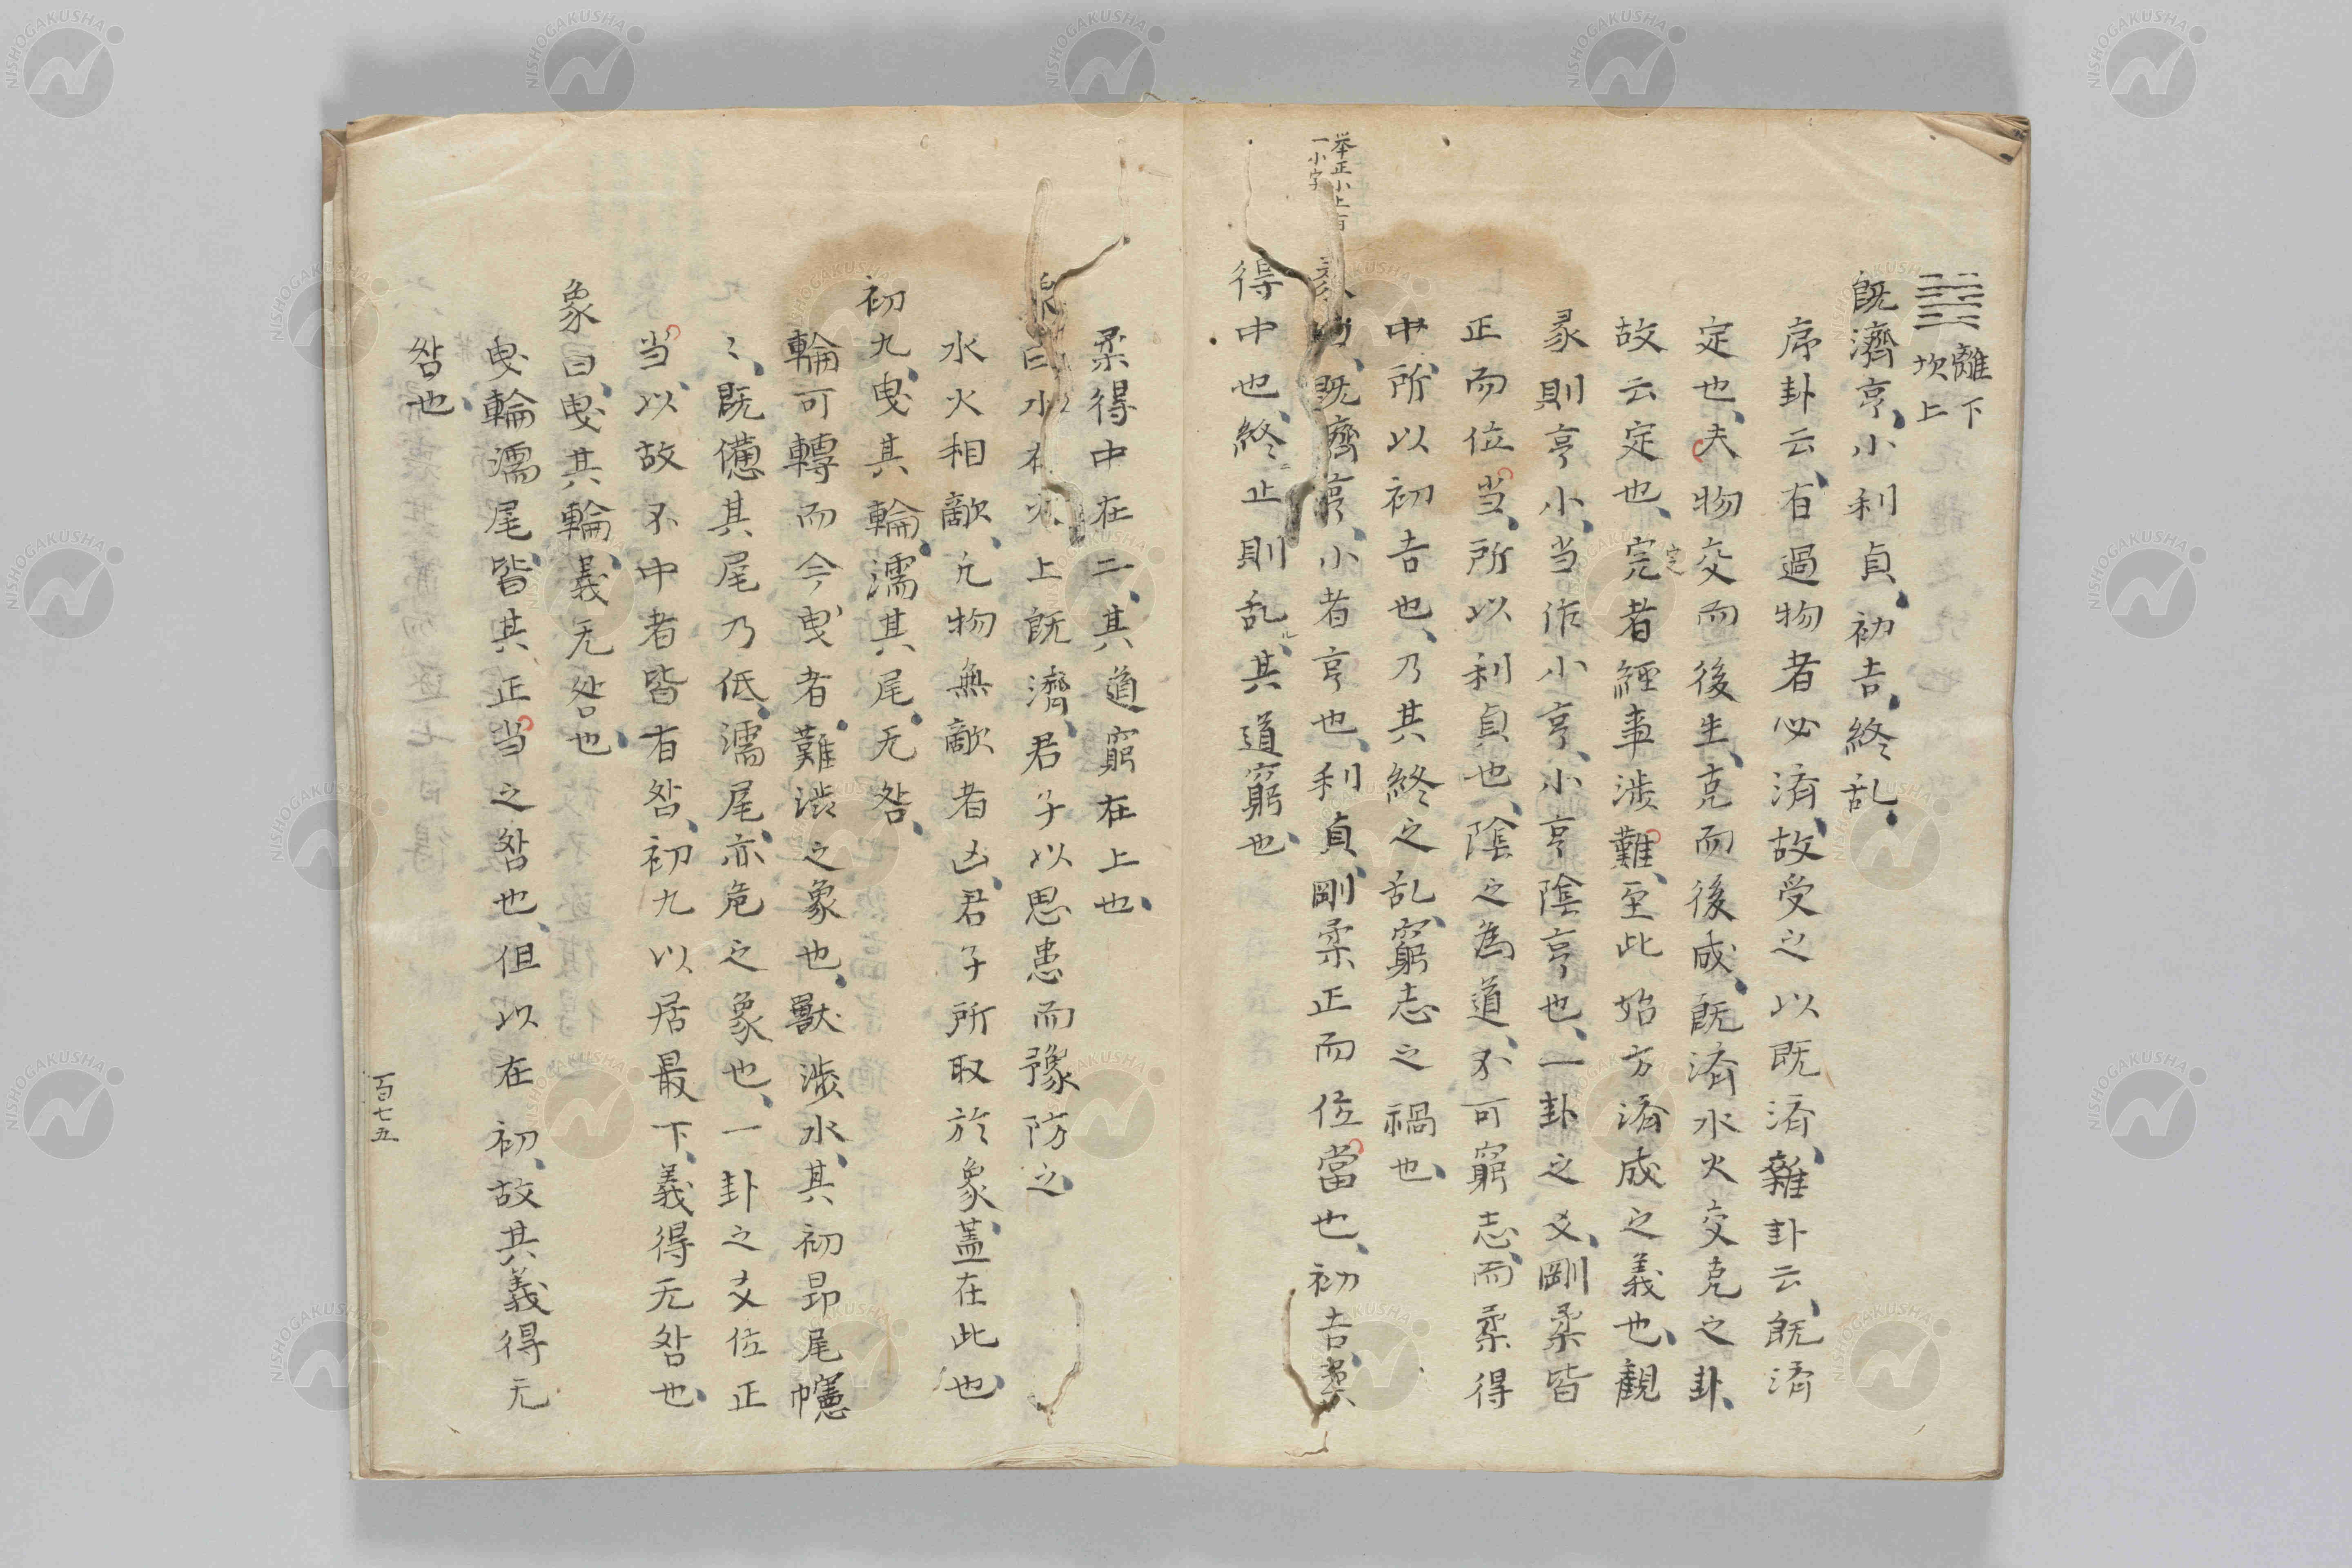 離下
坎上
既濟亨、小利貞、初吉、終乱、
序卦云、有過物者必済、故受之以既済、雜卦云、既済
定也、夫物交而後生、克而後成、既済水火交克之卦、
故云定也、完者經事渉難、至此始方済成之義也、観
定
彖則亨小、当作小亨、小亨陰亨也、一卦之爻、剛柔皆
正而位当、所以利貞也、陰之為道、不可窮志、而柔得
中、所以初吉也、乃其終之乱、窮志之禍也、
举正小上有
一小字
彖曰、既濟亨、小者亨也、利貞、剛柔正而位當也、初吉、柔
得中也、終止則乱、其道窮也、
柔得中在二、其道窮在上也、
象曰水在火上既濟、君子以思患而豫防之、
水火相敵、凡物無敵者凶、君子所取於象、蓋在此也、
初九、曳其輪、濡其尾、无咎、
輪可轉而今曳者、難渋之象也、獸渉水、其初昂尾
〻、既憊其尾乃低、濡尾、亦危之象也、一卦之爻位正
当、以故不中者皆有咎、初九以居最下、義得无咎也、
象曰、曳其輪、義无咎也、
曳輪濡尾、皆其正当之咎也、但以在初、故其義得无
咎也、
百七五